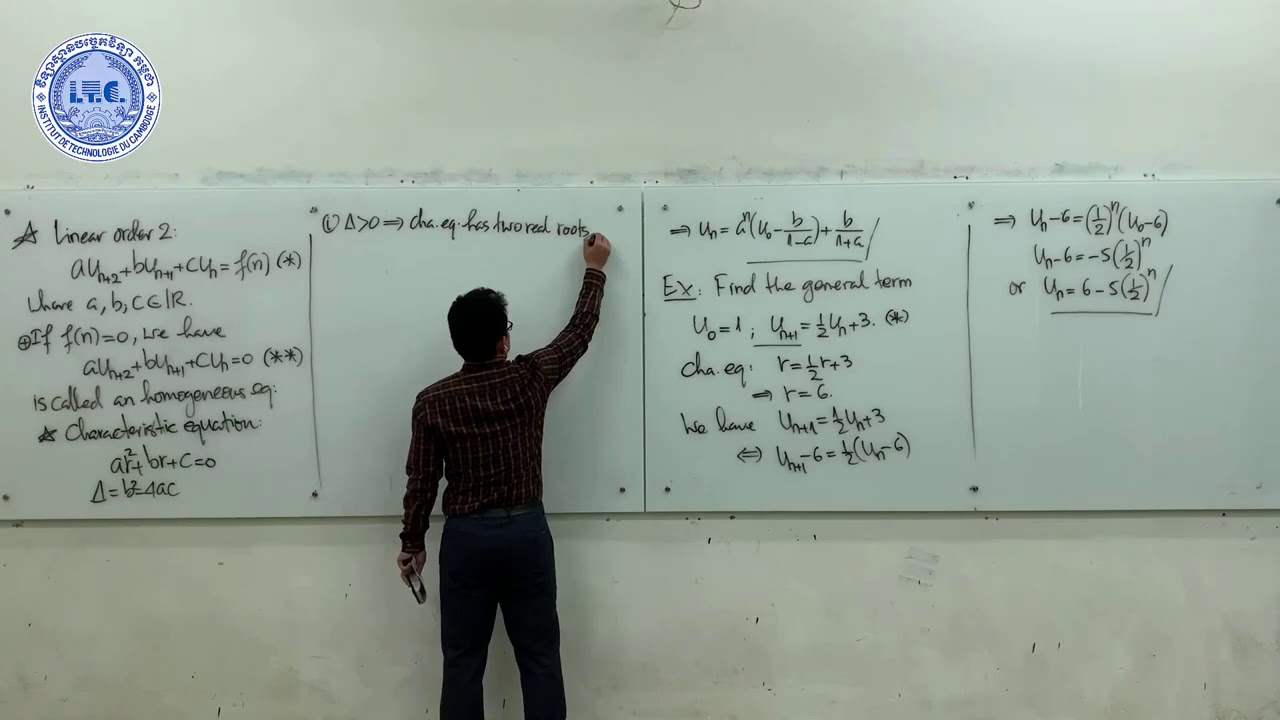 វិទ្យាស្ថានបច្ចេកវិទ្យា កម្ពុជា
I.T.C.
INSTITUT DE TECHNOLOGIE DU CAMBODGE
☆ Linear order 2:
aU_{n+2}+bU_{n+1}+cU_n=f(n) (*)
where a, b, c∈ℝ.
⊕If f(n)=0, we have
aU_{n+2}+bU_{n+1}+cU_n=0 (**)
is called an homogeneous eq:
☆ Characteristic equation:
ar²+br+c=0
Δ=b²-4ac
① Δ>0 ⇒ cha.eq. has two real roots
⇒ U_n = a^n(U_0-b/(1-a))+b/(1+a)
Ex: Find the general term
U_0=1; U_{n+1}=½U_n+3. (*)
cha.eq: r=½r+3
⇒ r=6.
We have U_{n+1}=½U_n+3
⇔ U_{n+1}-6=½(U_n-6)
⇒ U_n-6=(½)^n(U_0-6)
U_n-6=-5(½)^n
or U_n=6-5(½)^n